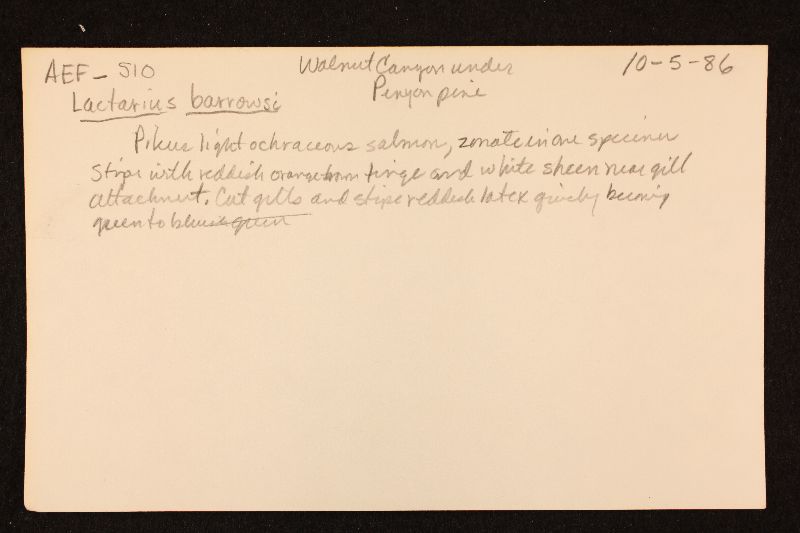 AEF-510
Walnut Canyon under
Pinyon pine
10-5-86
Lactarius barrowsi
Pileus light ochraceous salmon, zonate in one specimen
Stipe with reddish orange brown tinge and white sheen near gill
attachment. Cut gills and stipe reddish latex quickly becoming
green to blueish green